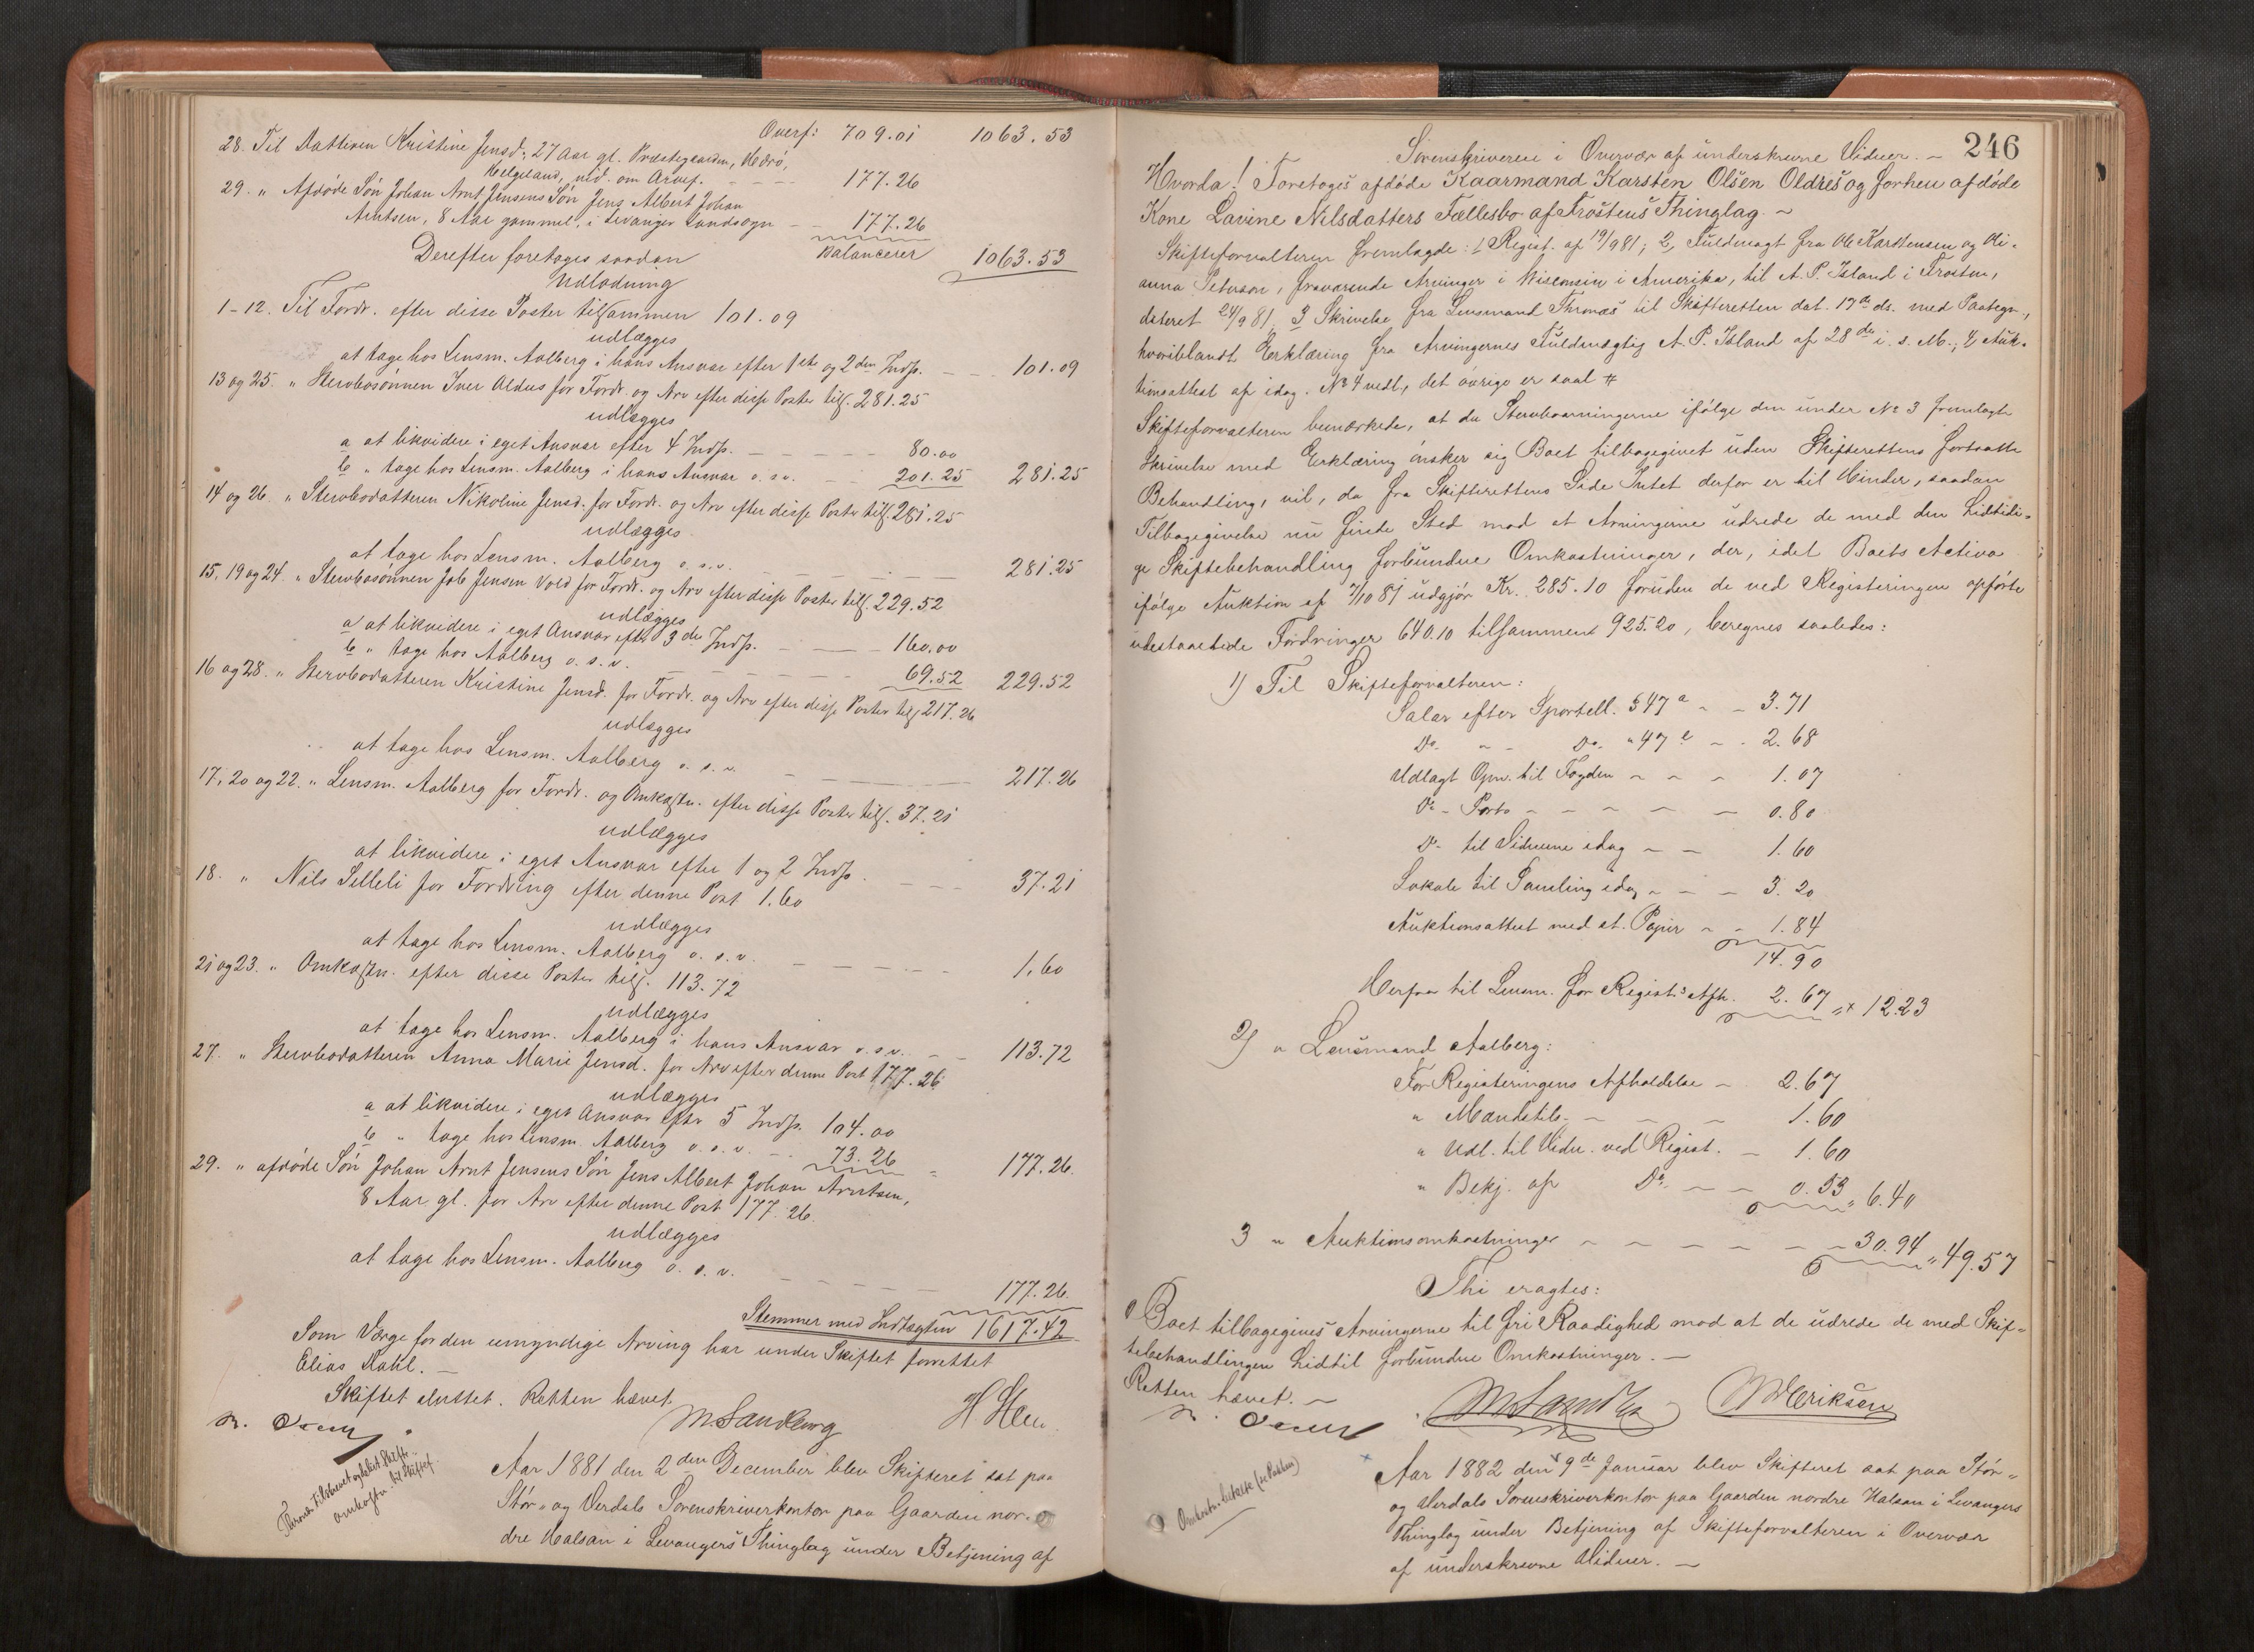 Overf: 709.01 1063.53
28. Til Datteren Kristine Jensd., 27 Aar gl. Præstegaarden, Herø,
Helgeland, und. om Arvef. - - - 177.26
29. " Afdøde Søn Johan Arnt Jensens Søn Jens Albert Johan
Arntsen, 8 Aar gammel, i Levanger Landsogn - - 177.26
Balancerer 1063.53
Derefter foretoges saadan
Udlodning
1-12. Til Fordr. efter disse Poster tilsammen 101.09
udlægges
at tage hos Lensm. Aalberg i hans Ansvar efter 1ste og 2den Indt. - - - 101.09
13 og 25. " Stervbosønnen Iver Aldus for Fordr. og Arv efter disse Poster tils. 281.25
udlægges
a at likvidere i eget Ansvar efter 4 Indt. - - - - - 80.00
b " tage hos Lensm. Aalberg i hans Ansvar o.s.v. - - 201.25 281.25
14 og 26. " Stervbodatteren Nikoline Jensd. for Fordr. og Arv efter disse Poster tils. 281.25
udlægges
at tage hos Lensm. Aalberg o.s.v. - - - - 281.25
15, 19 og 24. " Stervbosønnen Job Jensen Vold for Fordr. og Arv efter disse Poster tils. 229.52
udlægges
a at likvidere i eget Ansvar efter 3die Indt. - - - 160.00
b " tage hos Aalberg o.s.v. - - - - - 69.52 229.52
16 og 28. " Stervbodatteren Kristine Jensd. for Fordr. og Arv efter disse Poster tils. 217.26
udlægges
at tage hos Lensm. Aalberg o.s.v. - - - - 217.26
17, 20 og 22. " Lensm. Aalberg for Fordr. og Omkostn. efter disse Poster tils. 37.21
udlægges
at likvidere i eget Ansvar efter 1 og 2 Indt. - - - 37.21
18. " Nils Selleli for Fordring efter denne Post 1.60
udlægges
at tage hos Lensm. Aalberg o.s.v. - - - - - 1.60
21 og 23. " Omkostn. efter disse Poster tils. 113.72
udlægges
at tage hos Lensm. Aalberg i hans Ansvar o.s.v. - - 113.72
27. " Stervbodatteren Anna Marie Jensd. for Arv efter denne Post 177.26
udlægges
a at likvidere i eget Ansvar efter 5 Indt. 104.00
b " tage hos Lensm. Aalberg o.s.v. - 73.26 177.26
29. " afdøde Søn Johan Arnt Jensens Søn Jens Albert Johan Arntsen,
8 Aar gl. for Arv efter denne Post 177.26
udlægges
at tage hos Lensm. Aalberg o.s.v. - - - - - 177.26
Stemmer med Indtægten 1617.42
Som Værge for den umyndige Arving har under Skiftet forrettet
Elias Dahl. -
Skiftet sluttet. Retten hævet.
M. Sandberg
Aar 1881 den 2den December blev Skifteret sat paa
Stør- og Verdals Sorenskriverkontor paa Gaarden nor-
dre Halsan i Levangers Thinglag under Betjening af
246
Sorenskriveren i Overvær af underskrevne Vidner. -
Hvorda! Foretoges afdøde Kaarmand Karsten Olsen Oldres og forhen afdøde
Kone Lavine Nilsdatters Fællesbo af Frostens Thinglag. -
Skifteforvalteren fremlagde: 1 Regist. af 19/9 81; 2, Fuldmagt fra Ole Karstensen og Ni-
anna Peterson, fraværende Arvinger i Wisconsin i Amerika, til A. P. Island i Frosten,
dateret 24/9 81; 3 Skrivelse fra Lensmand Thronæs til Skifteretten dat. 17de ds. med Paategn.,
hvoriblandt Erklæring fra Arvingernes Fuldmægtig A. P. Island af 28de i. s. M.; 4 Auk-
tionsattest af idag. No 4 vedl., det øvrige er saal #
Skifteforvalteren bemærkede, at da Stervboarvingerne ifølge den under No 3 fremlagte
Skrivelse med Erklæring ønsker sig Boet tilbagegivet uden Skifterettens fortsatte
Behandling, vil, da fra Skifterettens Side Intet derfor er til Hinder, saadan
Tilbagegivelse nu finde Sted mod at Arvingerne udrede de med den hidtidi-
ge Skiftebehandling forbundne Omkostninger, der, idet Boets Activa
ifølge Auktion af 7/10 81 udgjør Kr. 285.10 foruden de ved Registeringen opførte
udestaaende Fordringer 640.10 tilsammen 925.20, beregnes saaledes:
1) Til Skifteforvalteren:
Salar efter Sportell. § 47 a - - 3.71
Do. - - Do. " 47 e - - 2.68
Udlagt Opn. til Fogden - - - 1.07
Do - Porto - - - - - 0.80
Do - til Vidnerne idag - - 1.60
Lokale til Samling idag - - - 3.20
Auktionsattest med st. Papir - - 1.84
14.90
Herfra til Lensm. for Regist.s Afh. 2.67 " 12.23
2) " Lensmand Aalberg:
For Registeringens Afholdelse - 2.67
" Mandstils. - - - - 1.60
" Udl. til Vidn. ved Regist. - 1.60
" Bekj. af Do. - - 0.53 " 6.40
3 " Auktionsomkostninger - - - - - - 30.94 " 49.57
Thi eragtes:
Boet tilbagegives Arvingerne til fri Raadighed mod at de udrede de med Skif-
tebehandlingen hidtil forbundne Omkostninger. -
Retten hævet. -
M Sandberg
Eriksen
Omkostn. betalte (se Pakken)
Aar 1882 den 9de Januar blev Skifteret sat paa Stør-
og Verdals Sorenskriverkontor paa Gaarden nordre Halsan i Levangers
Thinglag under Betjening af Skifteforvalteren i Overvær
af underskrevne Vidner. -